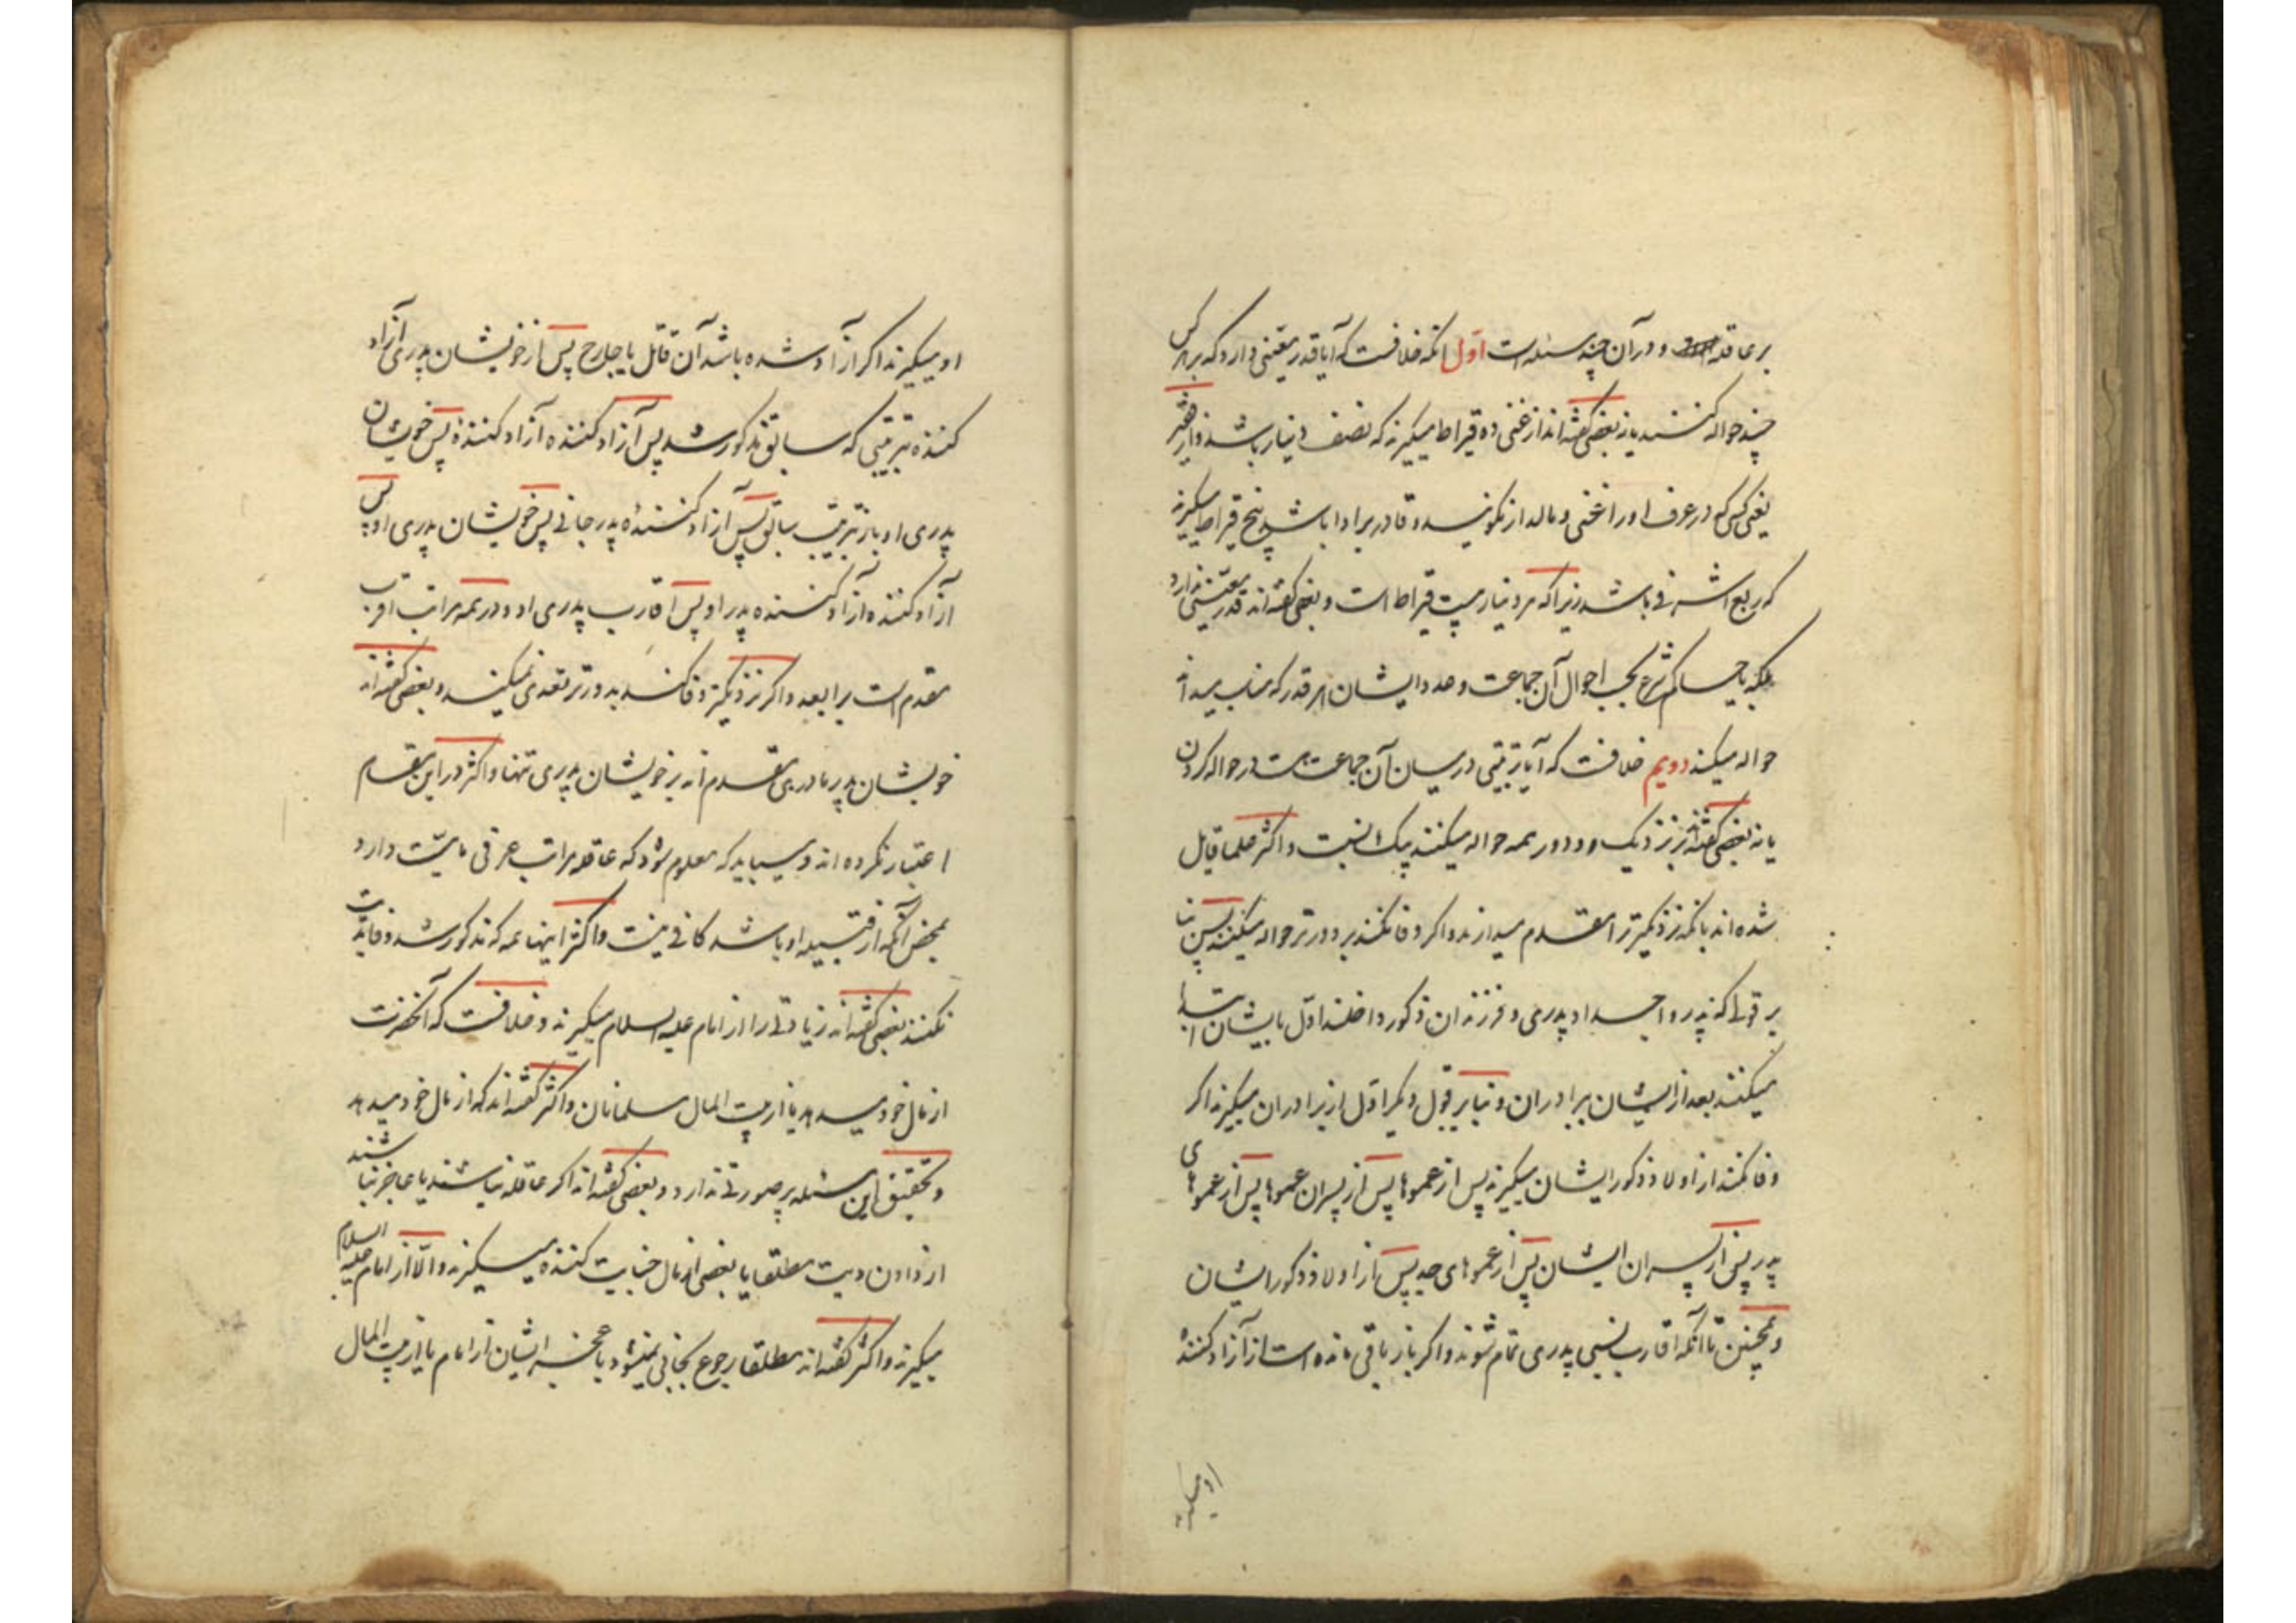 بر عاقله و در آن چند مسئله است اول آنکه خلافست که آیا قدر معینی دارد که بر هر کس
چند حواله کنند یا نه بعضی گفته‌اند از غنی ده قیراط میگیرند که نصف دینار باشد و از فقیر
یعنی کسی که در عرف او را غنی و مالدار نگویند و قادر بر ادا باشد پنج قیراط میگیرند
که ربع اشرفی باشد زیرا که هر دینار بیست قیراط است و بعضی گفته‌اند قدر معینی ندارد
بلکه حاکم شرع بحسب احوال آن جماعت و عدد ایشان هر قدر که مناسب میداند
حواله میکند دویم خلافست که آیا ترتیبی در میان آن جماعت هست در حواله کردن
یا نه بعضی گفته‌اند بر نزدیک و دور همه حواله میکنند بیک نسبت و اکثر علما قایل
شده‌اند بآنکه نزدیکتر را مقدم میدارند و اگر وفا نکند بر دورتر حواله میکنند پس بنا
بر قولی که پدر و اجداد پدری و فرزندان ذکور داخلند اول بایشان ابتدا
میکنند بعد از ایشان ببرادران و بنا بر قول دیگر اول از برادران میگیرند اگر
وفا نکند از اولاد ذکور ایشان میگیرند پس از عموها پس از پسران عموها پس از عموهای
پدر پس از پسران ایشان پس از عموهای جد پس از اولاد ذکور ایشان
و همچنین تا آنکه اقارب نسبی پدری تمام شوند و اگر باز باقی مانده است از آزاد کننده
او میگیرند
او میگیرند اگر آزاد شده باشد آن قاتل یا جارح پس از خویشان پدری آزاد
کننده بترتیبی که سابق مذکور شد پس آزاد کننده آزاد کننده پس خویشان
پدری او باز بترتیب سابق پس آزاد کننده پدر جانی پس خویشان پدری او پس
آزاد کننده آزاد کننده پدر او پس اقارب پدری او و در همه مراتب اقرب
مقدم است بر ابعد و اگر نزدیکتر وفا کند بدورتر تعدی نمیکنند و بعضی گفته‌اند
خویشان پدر مادری مقدم‌اند بر خویشان پدری تنها و اکثر در این مقام
اعتبار نکرده‌اند و میباید که معلوم شود که عاقله مراتب عرفی با میت دارد
بمحض آنکه از قبیله او باشد کافی نیست و اکثر اینها همه که مذکور شد وفا بدیت
نکنند بعضی گفته‌اند زیادتی را از امام علیه السلام میگیرند و خلافست که آنحضرت
از مال خود میدهد یا از بیت المال مسلمانان و اکثر گفته‌اند که از مال خود میدهد
و تحقیق این مسئله پر صورتی ندارد و بعضی گفته‌اند اگر عاقله نباشند یا عاجز باشند
از دادن دیت مطلقا یا بعضی از مال جنایت کننده میگیرند و الا از امام علیه السلام
میگیرند و اکثر گفته‌اند مطلقا رجوع بجانی نمیشود با عجز ایشان از امام یا از بیت المال